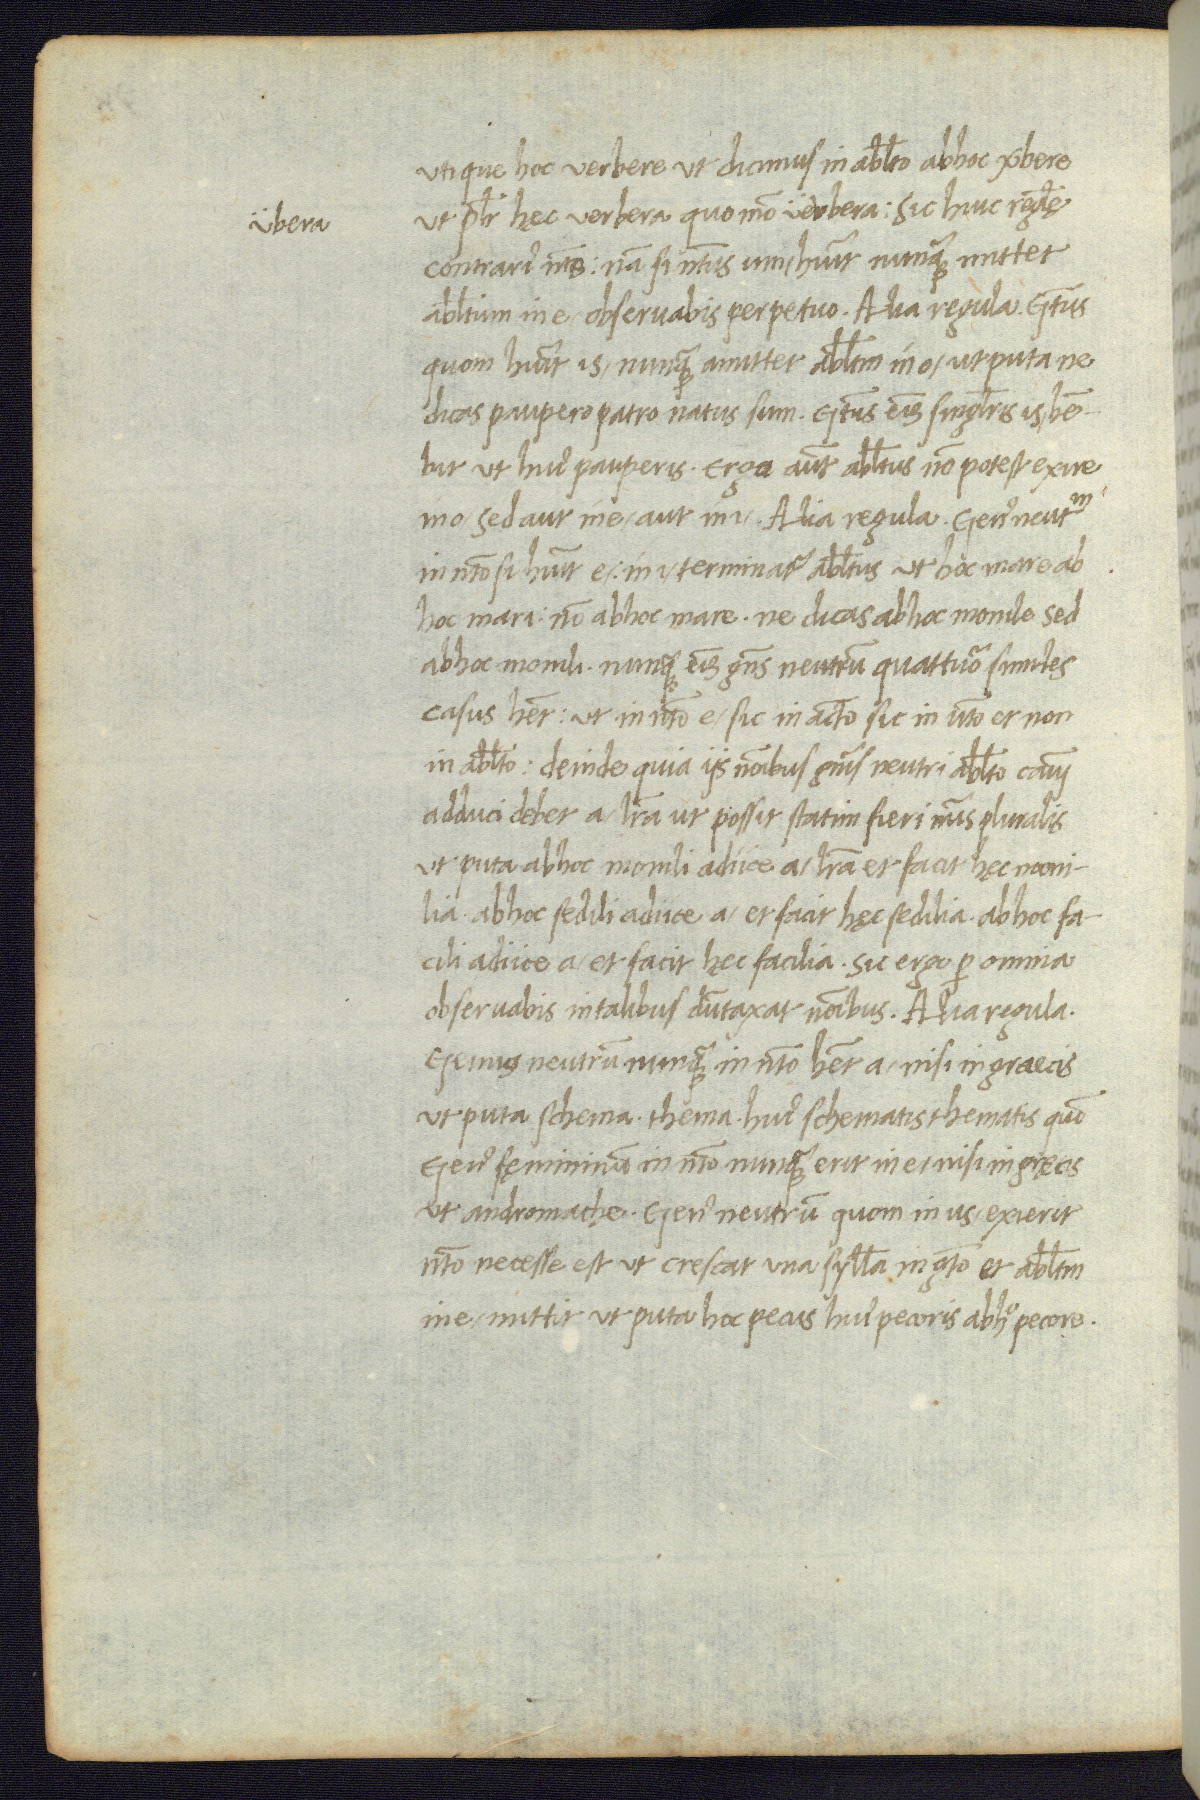 utique hoc verbere ut dicimus in abl̄to abhoc v̄bere
ut pl̄r hęc verbera quo mō ü verbera: Sic huic reg̅lę
übera
contrari᾿ nt̄s: nā si nt̄us um/hūt nunq̄ mittet
abl̄tum in e/ observabis perpetuo. Alia regula. Gt̄us
quom hūt is/ nunq̄ amittet abl̄tm in o/ ut puta ne
dicas paupero patro natus sum. Gt̄us eī singl̄ris is/ hē-
bit ut hui᾿ pauperis. Ergo aūt abl̄tus nō potest exire
in o/ sed aut in e/ aut in i/. Alia regula. Gen᾿ neutrm
in nt̄o si hūt e/: in i/ terminat᾿ abl̄tus ut hoc mare ab
hoc mari: nō abhoc mare. ne dicas abhoc monile sed
abhoc monili. nunq̄ eī gn̄s neutrū quattuor similes
casus hēt: ut in nt̄o e/ sic in act̄o sic in vt̄o et non
in abl̄to: deinde quia ijs nōibus gn̄is neutri abl̄to casui
adduci debet a/ lr̄a ut possit statim fieri nūs pluralis
ut puta abhoc monili adiice a/ lr̄a et facit hęc moni-
lia. abhoc sedili adiice a/ et facit hęc sedilia. abhoc fa-
cili adiice a/ et facit hęc facilia. Sic ergo p̱ omnia
observabis in talibus dūtaxat nōibus. Alia regula.
Genus neutrū nunq̄ in nt̄o hēt a/ nisi in graecis
ut puta schema. thema. hui᾿ schematis thematis quō
Gen᾿ fęmininū in nt̄o nunq̄ erit in e/ nisi in gręcis
ut andromachę. Gen᾿ neutrū quom in us/ exierit
nt̄o necesse est ut crescat una syll̄a in gt̄o et abl̄tm
in e/ mittit ut puta hoc pecus hui᾿ pecoris abh° pecore.